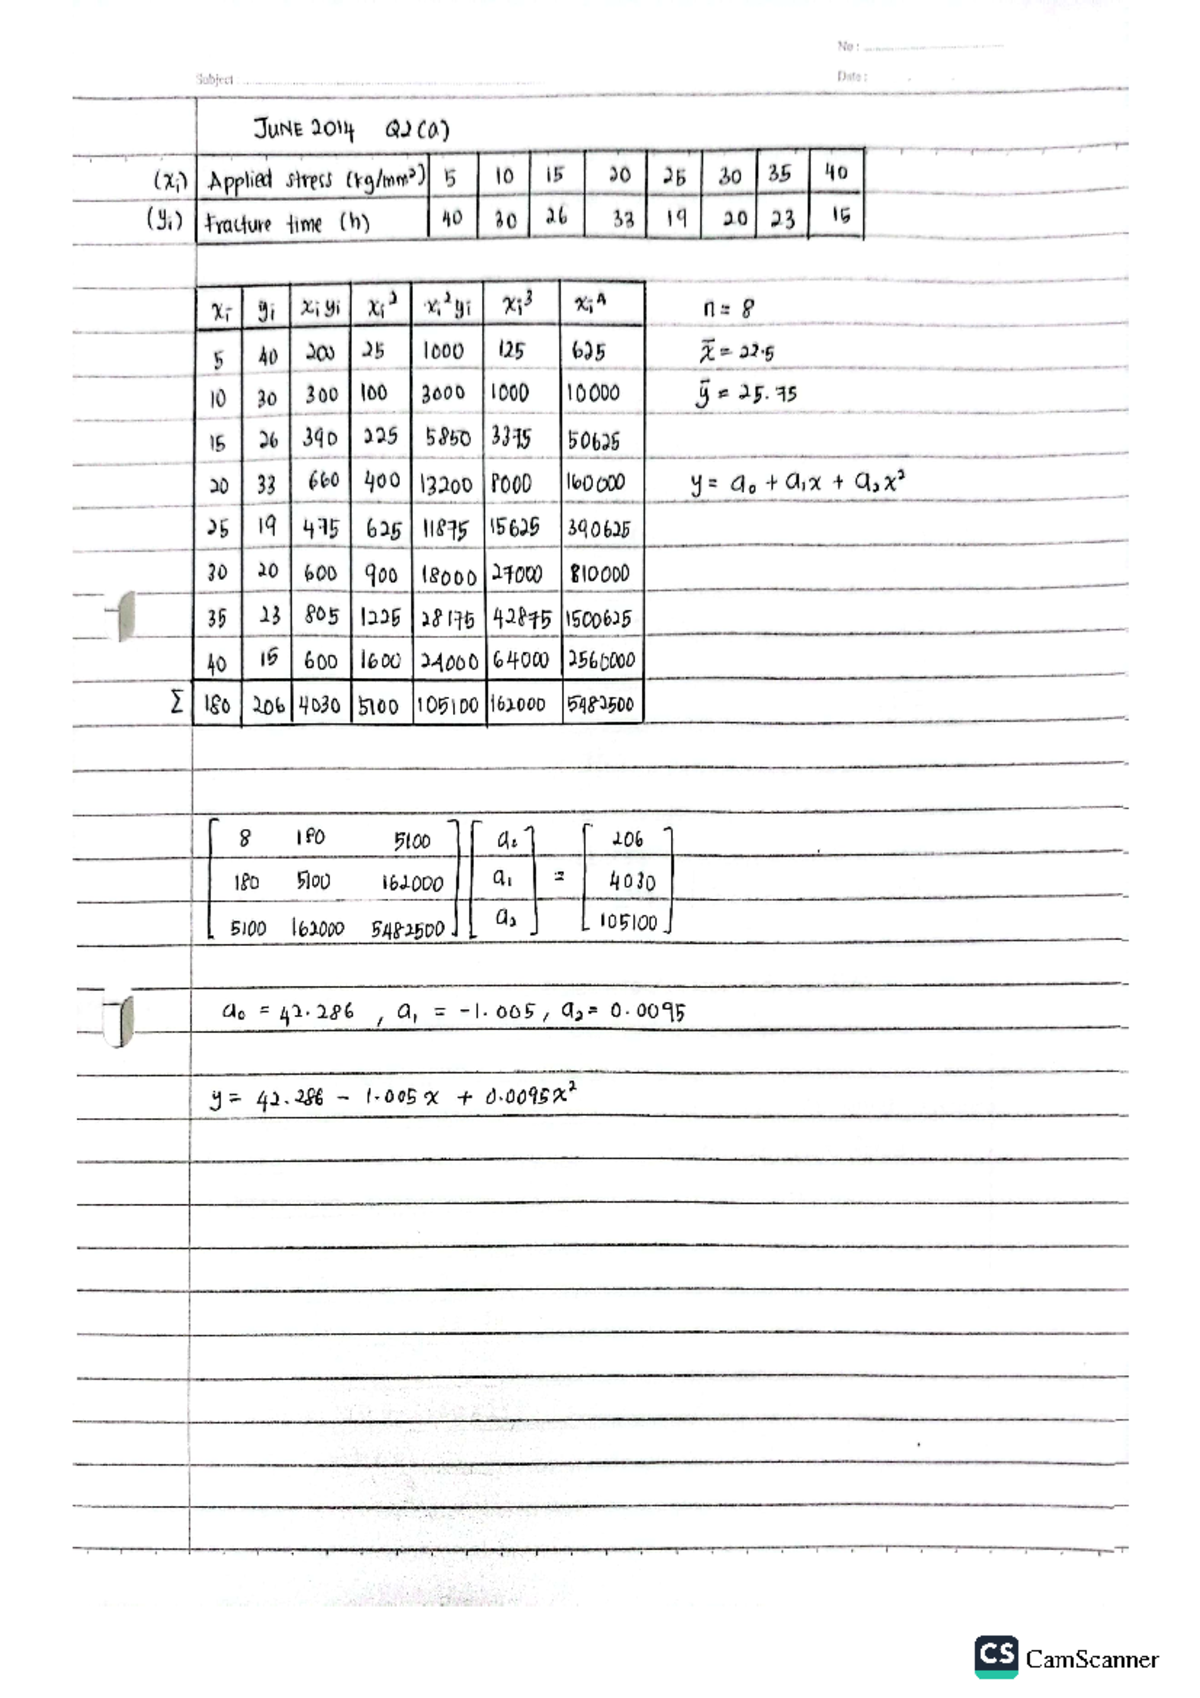 No :
Subject
Date :
JUNE 2014 Q2 (a)
(xi) Applied stress (kg/mm²) 5 10 15 20 25 30 35 40
(yi) Fracture time (h) 40 30 26 33 19 20 23 15
xi yi xiyi xi² xi²yi xi³ xi⁴
n = 8
5 40 200 25 1000 125 625
x̄ = 22.5
10 30 300 100 3000 1000 10000
ȳ = 25.75
15 26 390 225 5850 3375 50625
20 33 660 400 13200 8000 160000
y = a₀ + a₁x + a₂x²
25 19 475 625 11875 15625 390625
30 20 600 900 18000 27000 810000
35 23 805 1225 28175 42875 1500625
40 15 600 1600 24000 64000 2560000
Σ 180 206 4030 5100 105100 162000 5482500
8 180 5100 a₀ 206
180 5100 162000 a₁ = 4030
5100 162000 5482500 a₂ 105100
a₀ = 42.286 , a₁ = -1.005 , a₂ = 0.0095
y = 42.286 - 1.005x + 0.0095x²
CS CamScanner